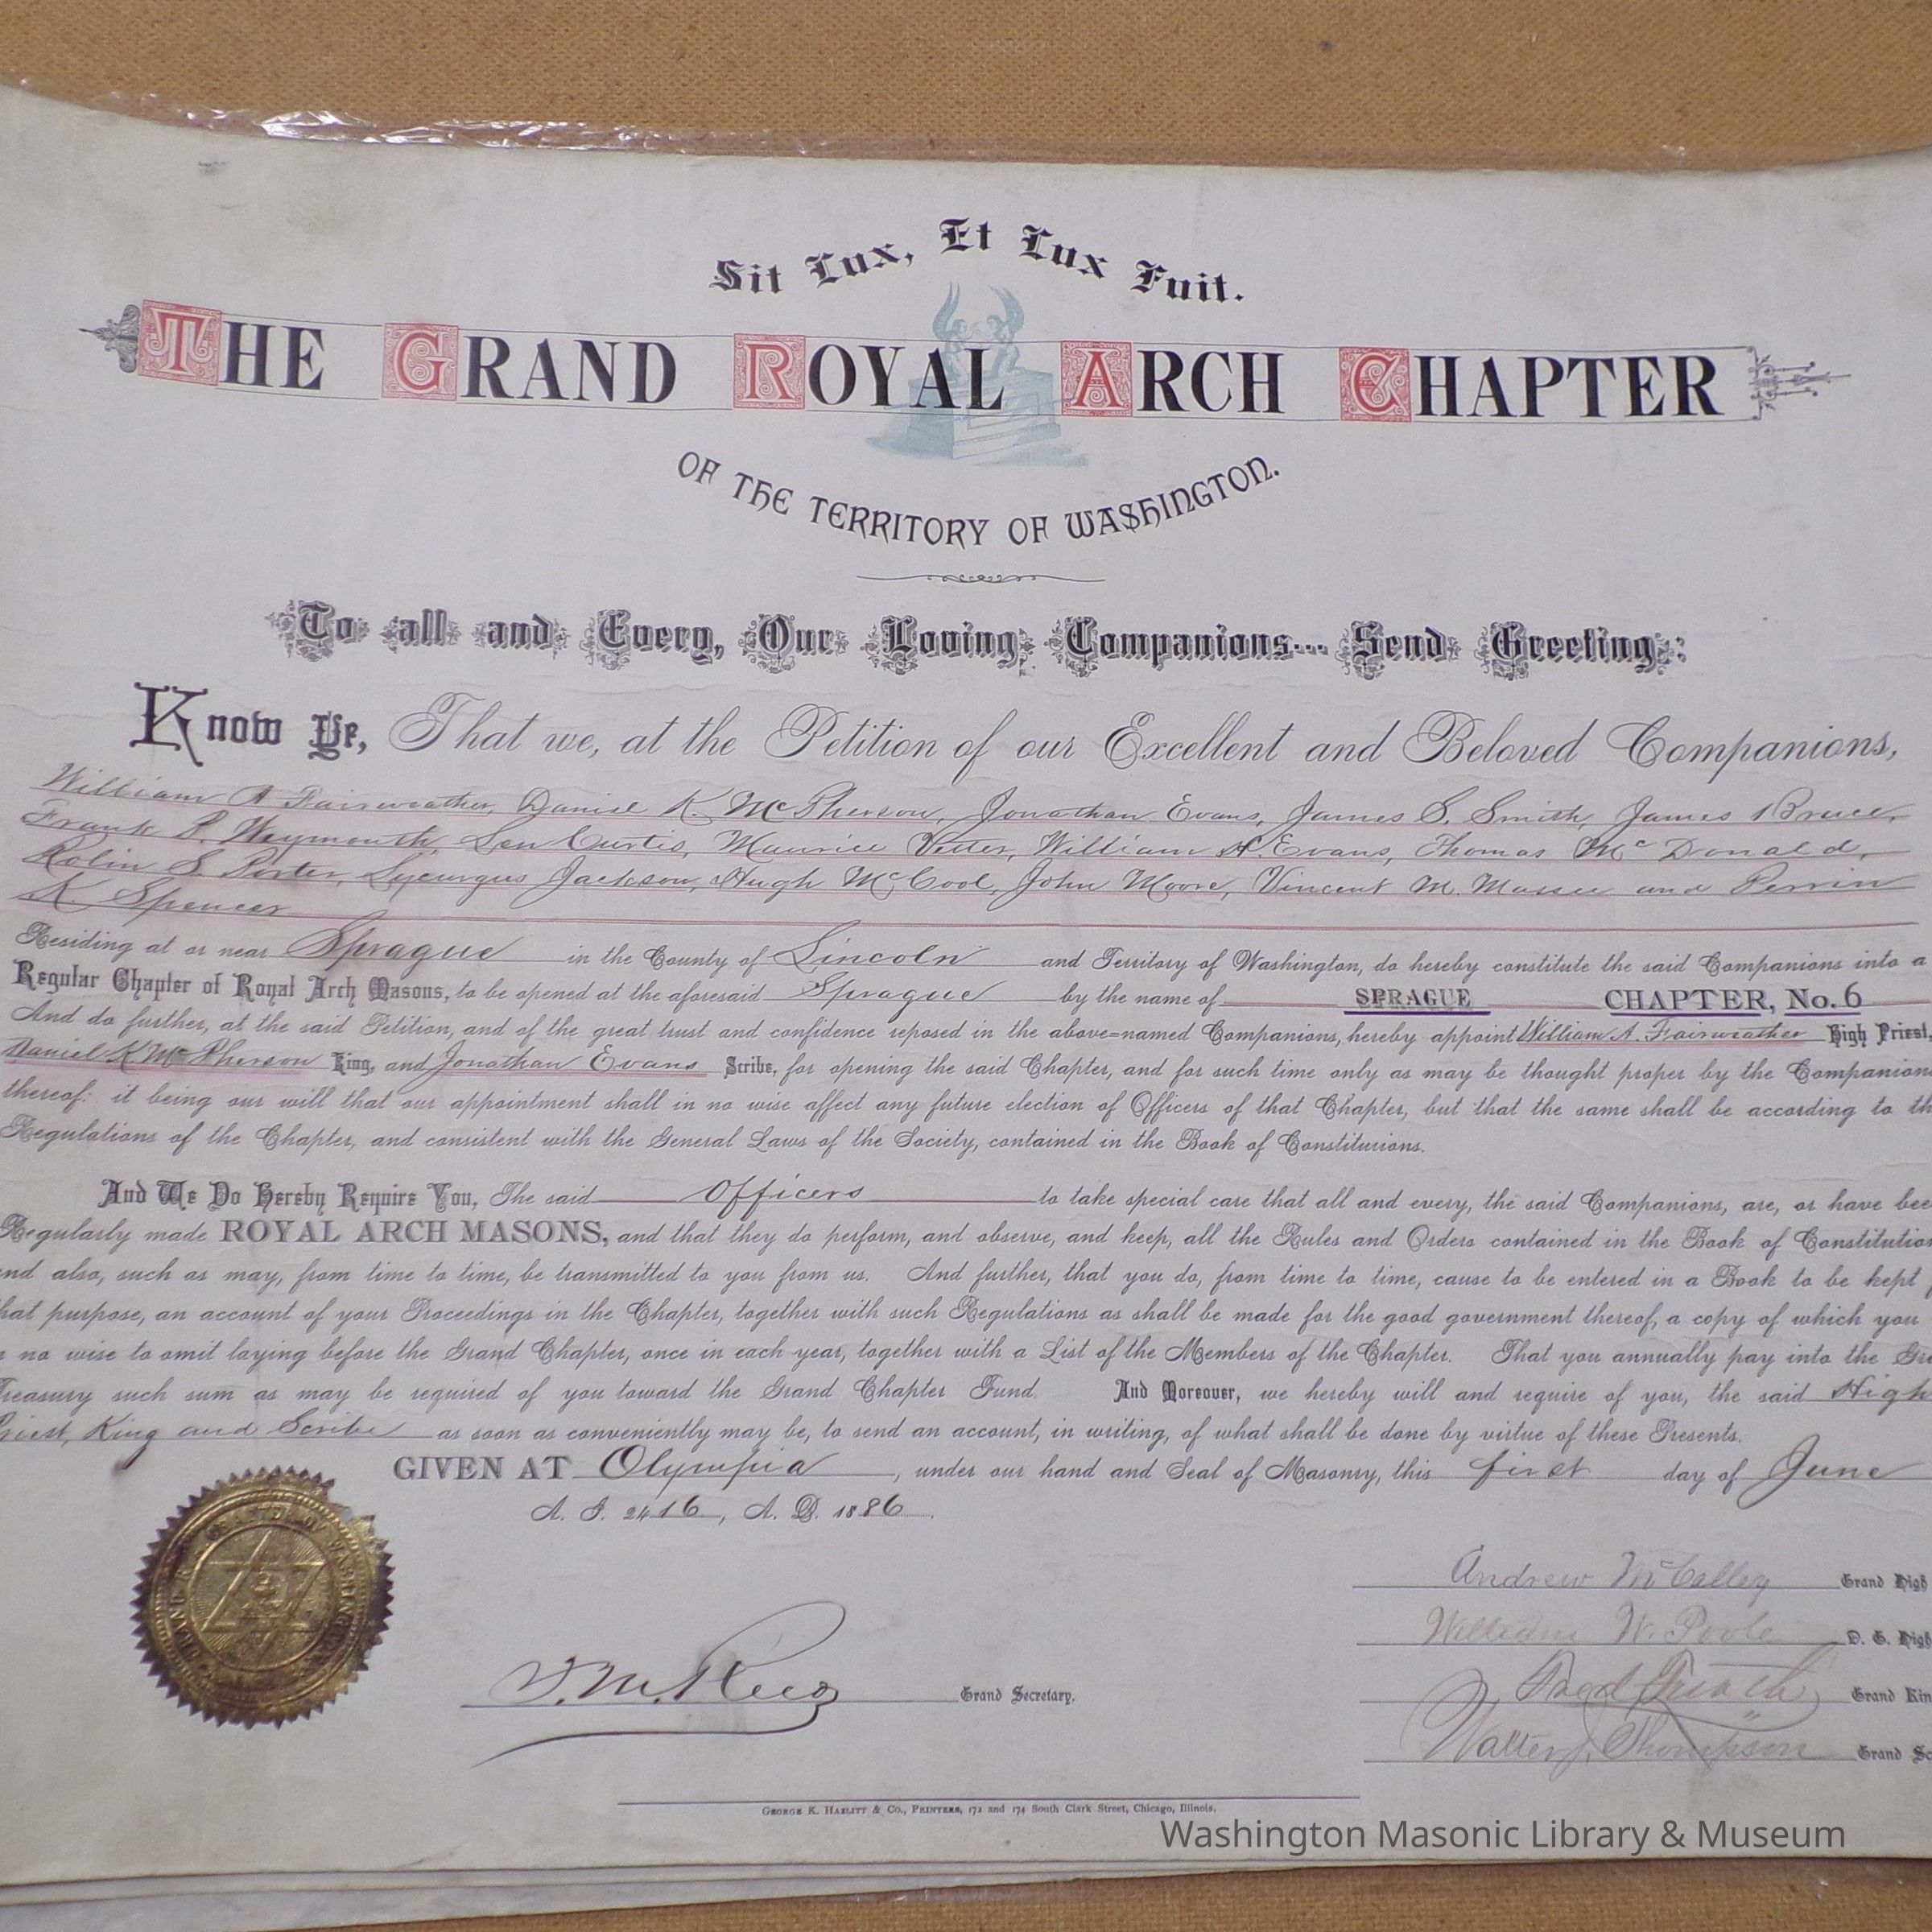 Sit Lux, Et Lux Fuit.
THE GRAND ROYAL ARCH CHAPTER
OF THE TERRITORY OF WASHINGTON.
To all and Every, Our Loving Companions... Send Greeting:
Know Ye, That we, at the Petition of our Excellent and Beloved Companions,
William A Fairweather, Daniel K. McPherson, Jonathan Evans, James S. Smith, James Bruce,
Frank P. Weymouth, Len Curtis, Maurice Vetter, William H. Evans, Thomas McDonald,
Rolin S. Porter, Lycurgus Jackson, Hugh McCool, John Moore, Vincent M. Massie and Perrin
K. Spencer
Residing at or near Sprague in the County of Lincoln and Territory of Washington, do hereby constitute the said Companions into a
Regular Chapter of Royal Arch Masons, to be opened at the aforesaid Sprague by the name of SPRAGUE CHAPTER, No. 6
And do further, at the said Petition, and of the great trust and confidence reposed in the above=named Companions, hereby appoint William A. Fairweather High Priest,
Daniel K McPherson King, and Jonathan Evans Scribe, for opening the said Chapter, and for such time only as may be thought proper by the Companions
thereof: it being our will that our appointment shall in no wise affect any future election of Officers of that Chapter, but that the same shall be according to th
Regulations of the Chapter, and consistent with the General Laws of the Society, contained in the Book of Constitutions.
And We Do Hereby Require You, The said Officers to take special care that all and every, the said Companions, are, or have bee
Regularly made ROYAL ARCH MASONS, and that they do perform, and observe, and keep, all the Rules and Orders contained in the Book of Constitution
nd also, such as may, from time to time, be transmitted to you from us. And further, that you do, from time to time, cause to be entered in a Book to be kept f
hat purpose, an account of your Proceedings in the Chapter, together with such Regulations as shall be made for the good government thereof, a copy of which you
n no wise to omit laying before the Grand Chapter, once in each year, together with a List of the Members of the Chapter. That you annually pay into the Gra
Treasury such sum as may be required of you toward the Grand Chapter Fund. And Moreover, we hereby will and require of you, the said High
Priest, King and Scribe as soon as conveniently may be, to send an account, in writing, of what shall be done by virtue of these Presents.
GIVEN AT Olympia, under our hand and Seal of Masonry, this first day of June
A. I. 2416, A. D. 1886.
Andrew McCalley Grand High
William W. Poole D. G. High
Grand Kin
Walter J. Thompson Grand Sc
T. M. Reed Grand Secretary.
GEORGE K. HAZLITT & CO., PRINTERS, 172 and 174 South Clark Street, Chicago, Illinois.
Washington Masonic Library & Museum